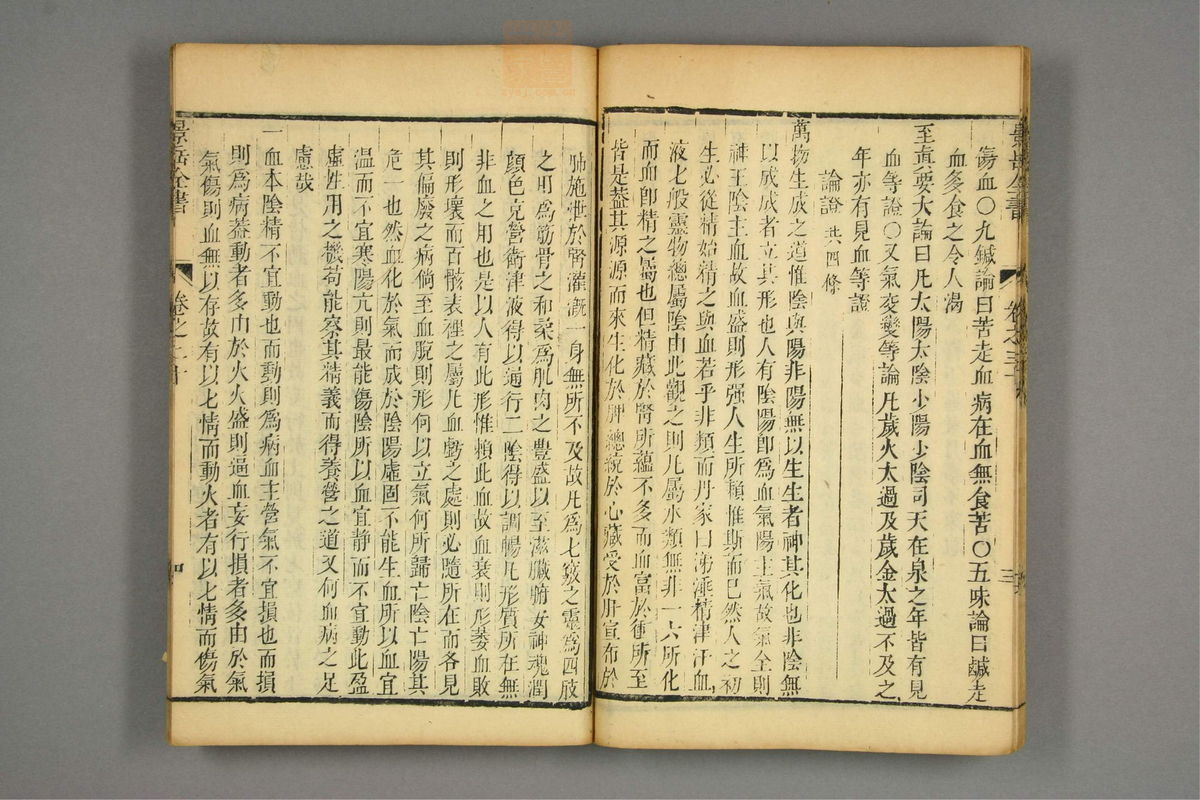 景岳全書 卷之三十 三
傷血〇九鍼論曰苦走血病在血無食苦〇五味論曰鹹走
血多食之令人渴
至眞要大論曰凡太陽太陰少陽少陰司天在泉之年皆有見
血等證〇又氣交變等論凡歲火太過及歲金太過不及之
年亦有見血等證
論證 共四條
萬物生成之道惟陰與陽非陽無以生生者神其化也非陰無
以成成者立其形也人有陰陽卽爲血氣陽主氣故氣全則
神王陰主血故血盛則形强人生所賴惟斯而已然人之初
生必從精始精之與血若乎非類而丹家曰涕涶精津汗血
液七般靈物總屬陰由此觀之則凡屬水類無非一六所化
而血卽精之屬也但精藏於腎所蘊不多而血富於衝所至
皆是葢其源源而來生化於脾總統於心藏受於肝宣布於
肺施泄於腎灌漑一身無所不及故凡爲七竅之靈爲四肢
之用爲筋骨之和柔爲肌肉之豐盛以至滋臟腑安神魂潤
顔色克營衛津液得以通行二陰得以調暢凡形質所在無
非血之用也是以人有此形惟賴此血故血衰則形萎血敗
則形壞而百骸表裡之屬凡血虧之處則必隨所在而各見
其偏廢之病倘至血脫則形何以立氣何所歸亡陰亡陽其
危一也然血化於氣而成於陰陽虛固不能生血所以血宜
溫而不宜寒陽亢則最能傷陰所以血宜静而不宜動此盈
虛性用之機苟能察其精義而得養營之道又何血病之足
慮哉
一血本陰精不宜動也而動則爲病血主營氣不宜損也而損
則爲病葢動者多由於火火盛則逼血妄行損者多由於氣
氣傷則血無以存故有以七情而動火者有以七情而傷氣
景岳全書 卷之三十 四